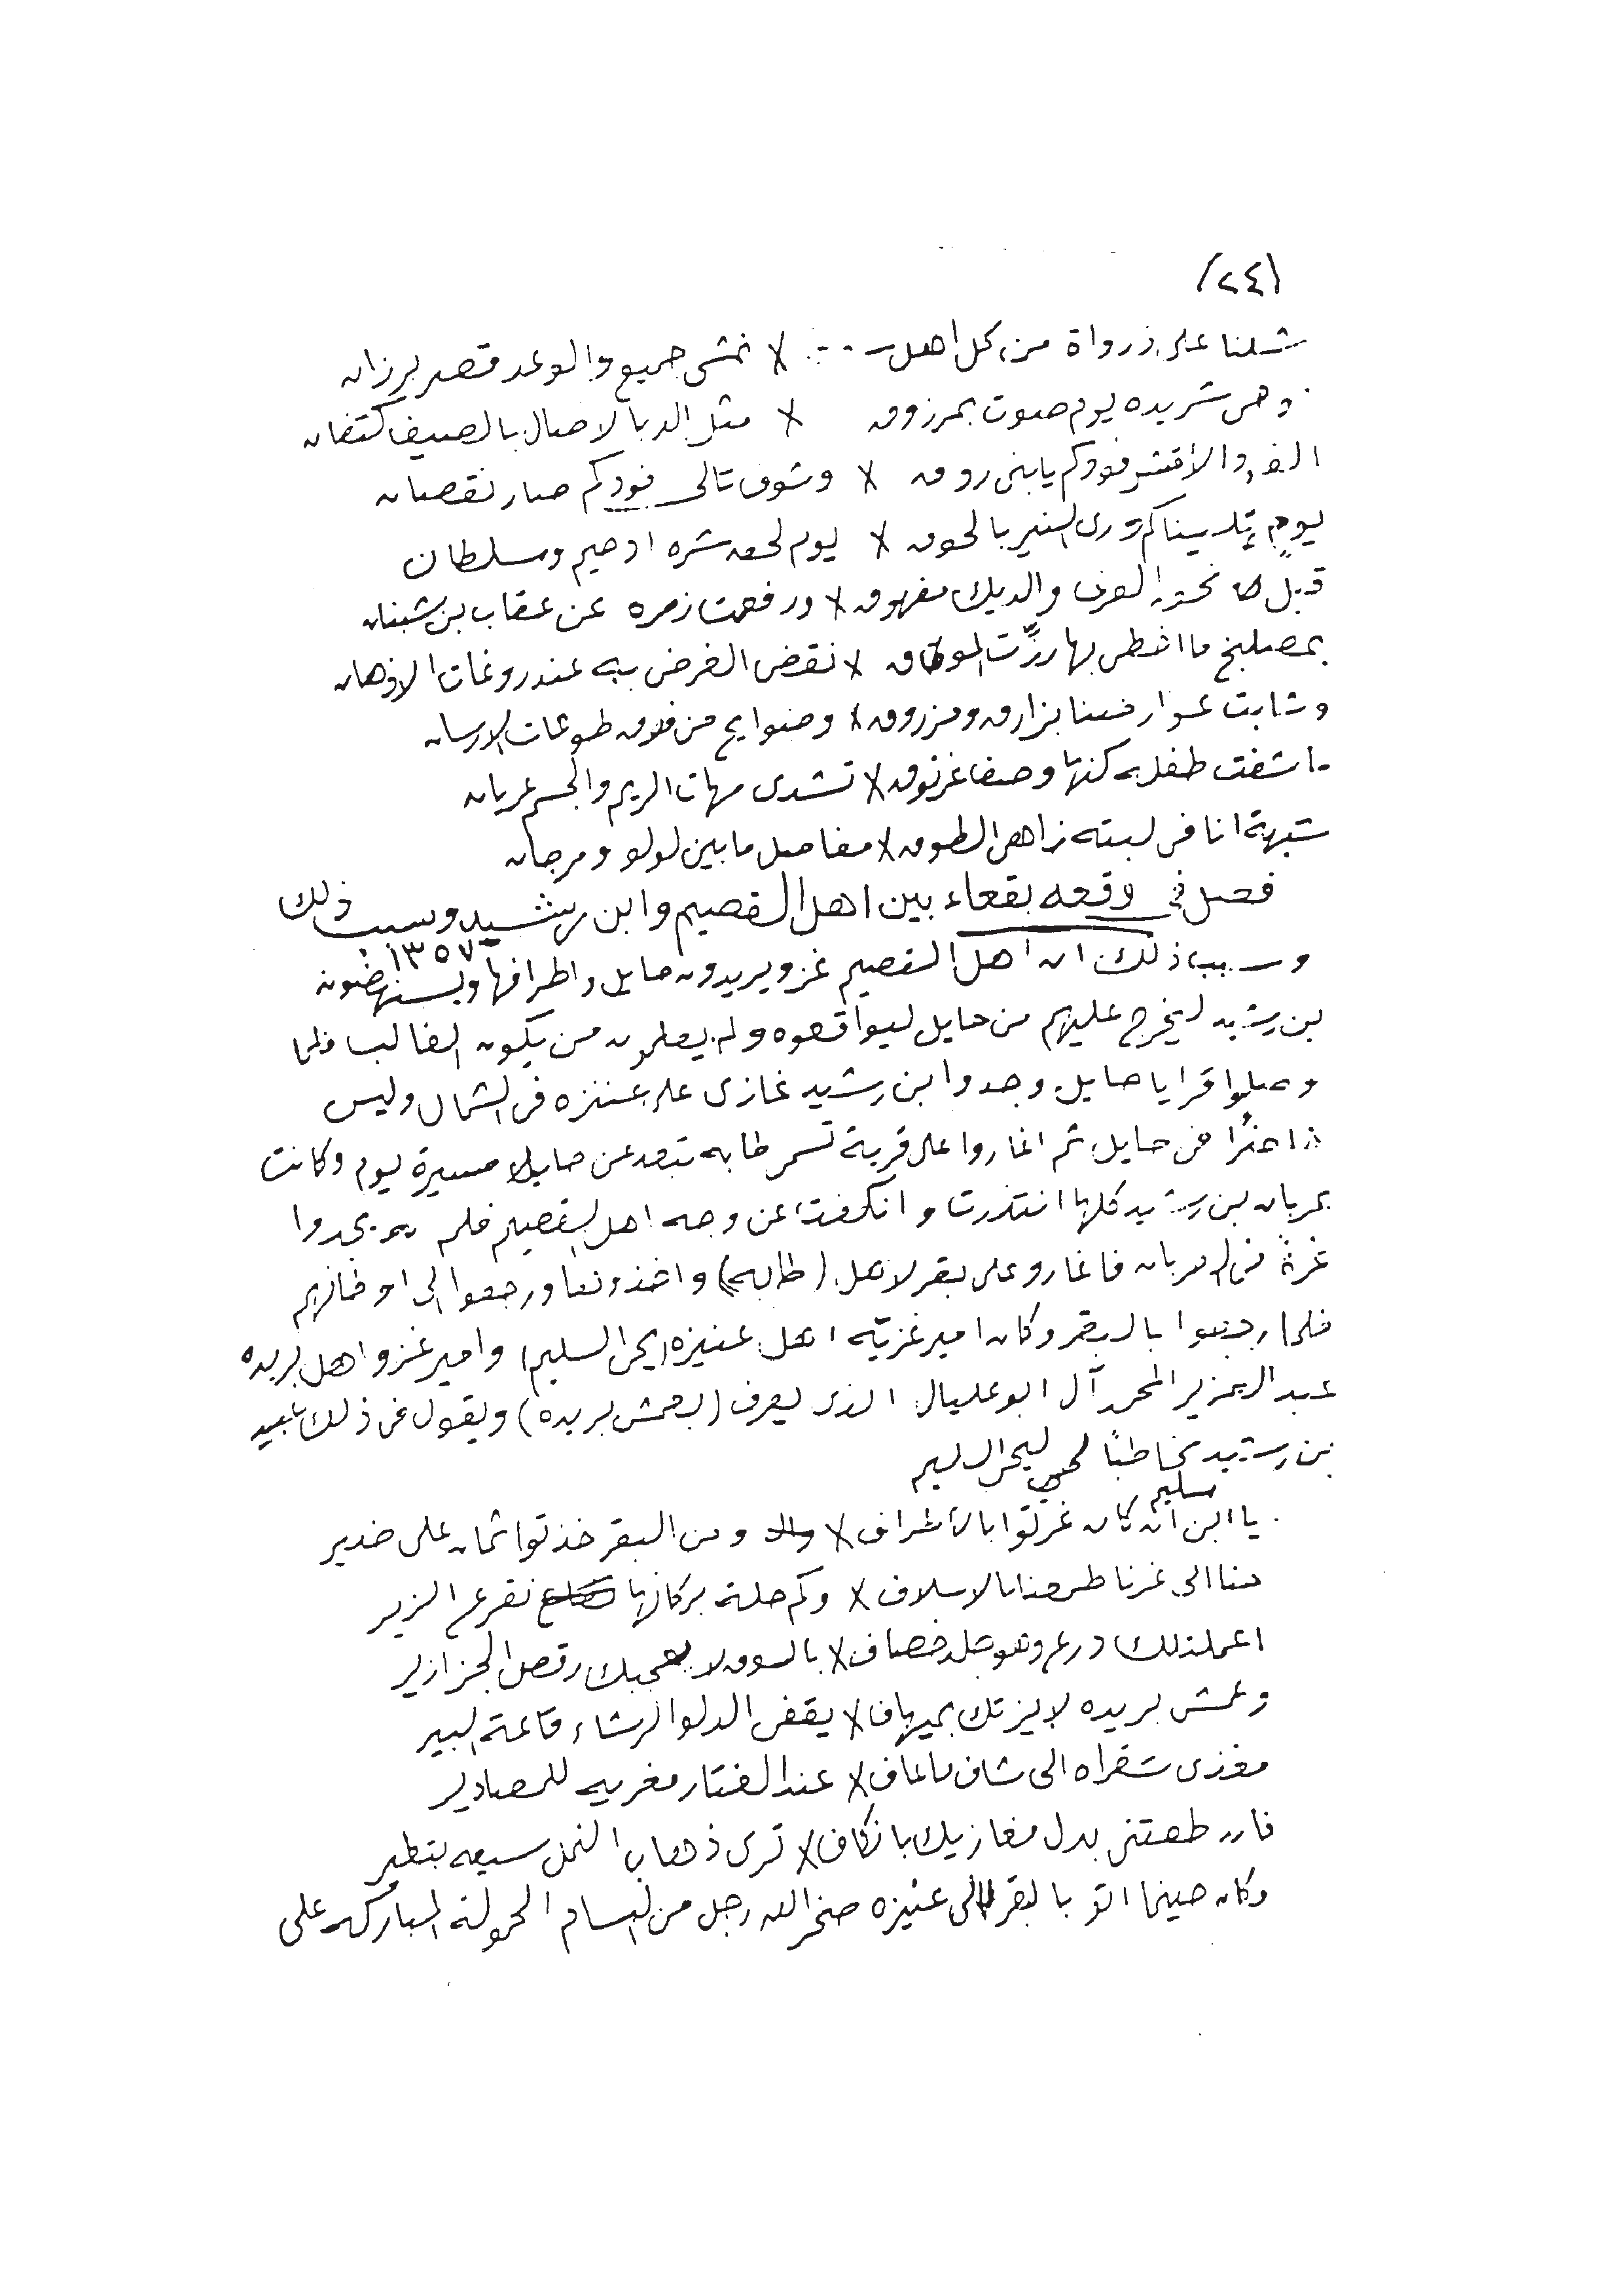 (٢٤)
شلنا على ذرواة من كل اهل ... لا نمشي جميع والوعد قصر برزان
وهي شريده يوم صوت بمرزوق لا مثل الدبا لاصال بالصيف كتفان
والاقشر فودكم يا بني روق لا وشوف تالي فودكم صار نقصان
يوم بالحوق لا يوم لحقه شره ادحيم وسلطان
قبل العرف والديك مفهوق لا ورفعت زمره عن عقاب بن شبنان
بمصليخ ما اشطى بها رزّت الموطاق لا نقض الفرض به عند روغات الاذهان
وشابت عوارضنا بزارق ومزروق لا وصوايح من فوق طوعات الارسان
ما شفت طفلة كنها وصف غرنوق لا تشدى مهات الريم والجسم عريان
شبهة انا في لبته زاهي الطوق لا مفاصل ما بين لولو ومرجان
فصل في وقعه بقعاء بين اهل القصيم وابن رشيد وسبب ذلك
١٣٥٧
وسبب ذلك ان اهل القصيم غزو يريدون حايل واطرافها ويستنهضون
بن رشيد ليخرج عليهم من حايل ليواقعوه ولم يعلمون من يكون الغالب فلما
وصلوا قرايا حايل وجدوا ابن رشيد غازي على عنزه في الشمال وليس
في حايل ثم اغاروا على قرية تسمى طابه تبعد عن حايل مسيرة يوم وكانت
عربان بن رشيد كلها انتذرت و انكفت عن وجه اهل القصيم فلم يجدوا
غرة في العربان فاغارو على بقر لاهل (طابه) واخذوها ورجعوا الى اوطانهم
فلما رجعوا بالبقر وكان امير غزيّه اهل عنيزه (يحي السليم) وامير غزو اهل بريده
عبدالعزيز المحمد آل ابو عليان الذي يعرف (بعمش بريده) ويقول في ذلك عبيد
بن رشيد مخاطبًا ليحي السليم
يا ابن سليم كان غزيتوا بالاطراف لا ومن البقر خذتوا ثمان على ضدير
حنا الى غزنا طمعنا بالاسلاف لا وكم حلة بركانها نقرع الزير
اعملتلك درع وهو جلد خصاف لا بالسوق لا يعجبك رقص الجزازير
وعمش بريده لا يزتك بميهاف لا يقضي الدلو الرشاء قاعة البير
مغذي شقراه الى شاف ما عاف لا عند الفتار مغربه للمصادير
فان طعتني بدل مغازيك بانكاف لا ترى ذهاب النمل سيعه بتطير
وكان حينما اتو بالبقر الى عنيزه ضحى الله رجل من البسام الحمولة المباركه على